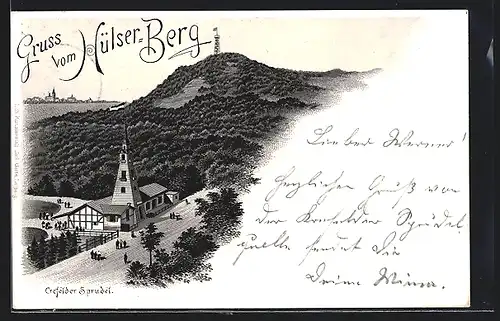 Gruss
vom Hülser-Berg
Crefelder Sprudel.
Lieber Werner!
Herzlichen Gruß von
der Krefelder Sprudel-
quelle sendet Dir
Deine Minna.